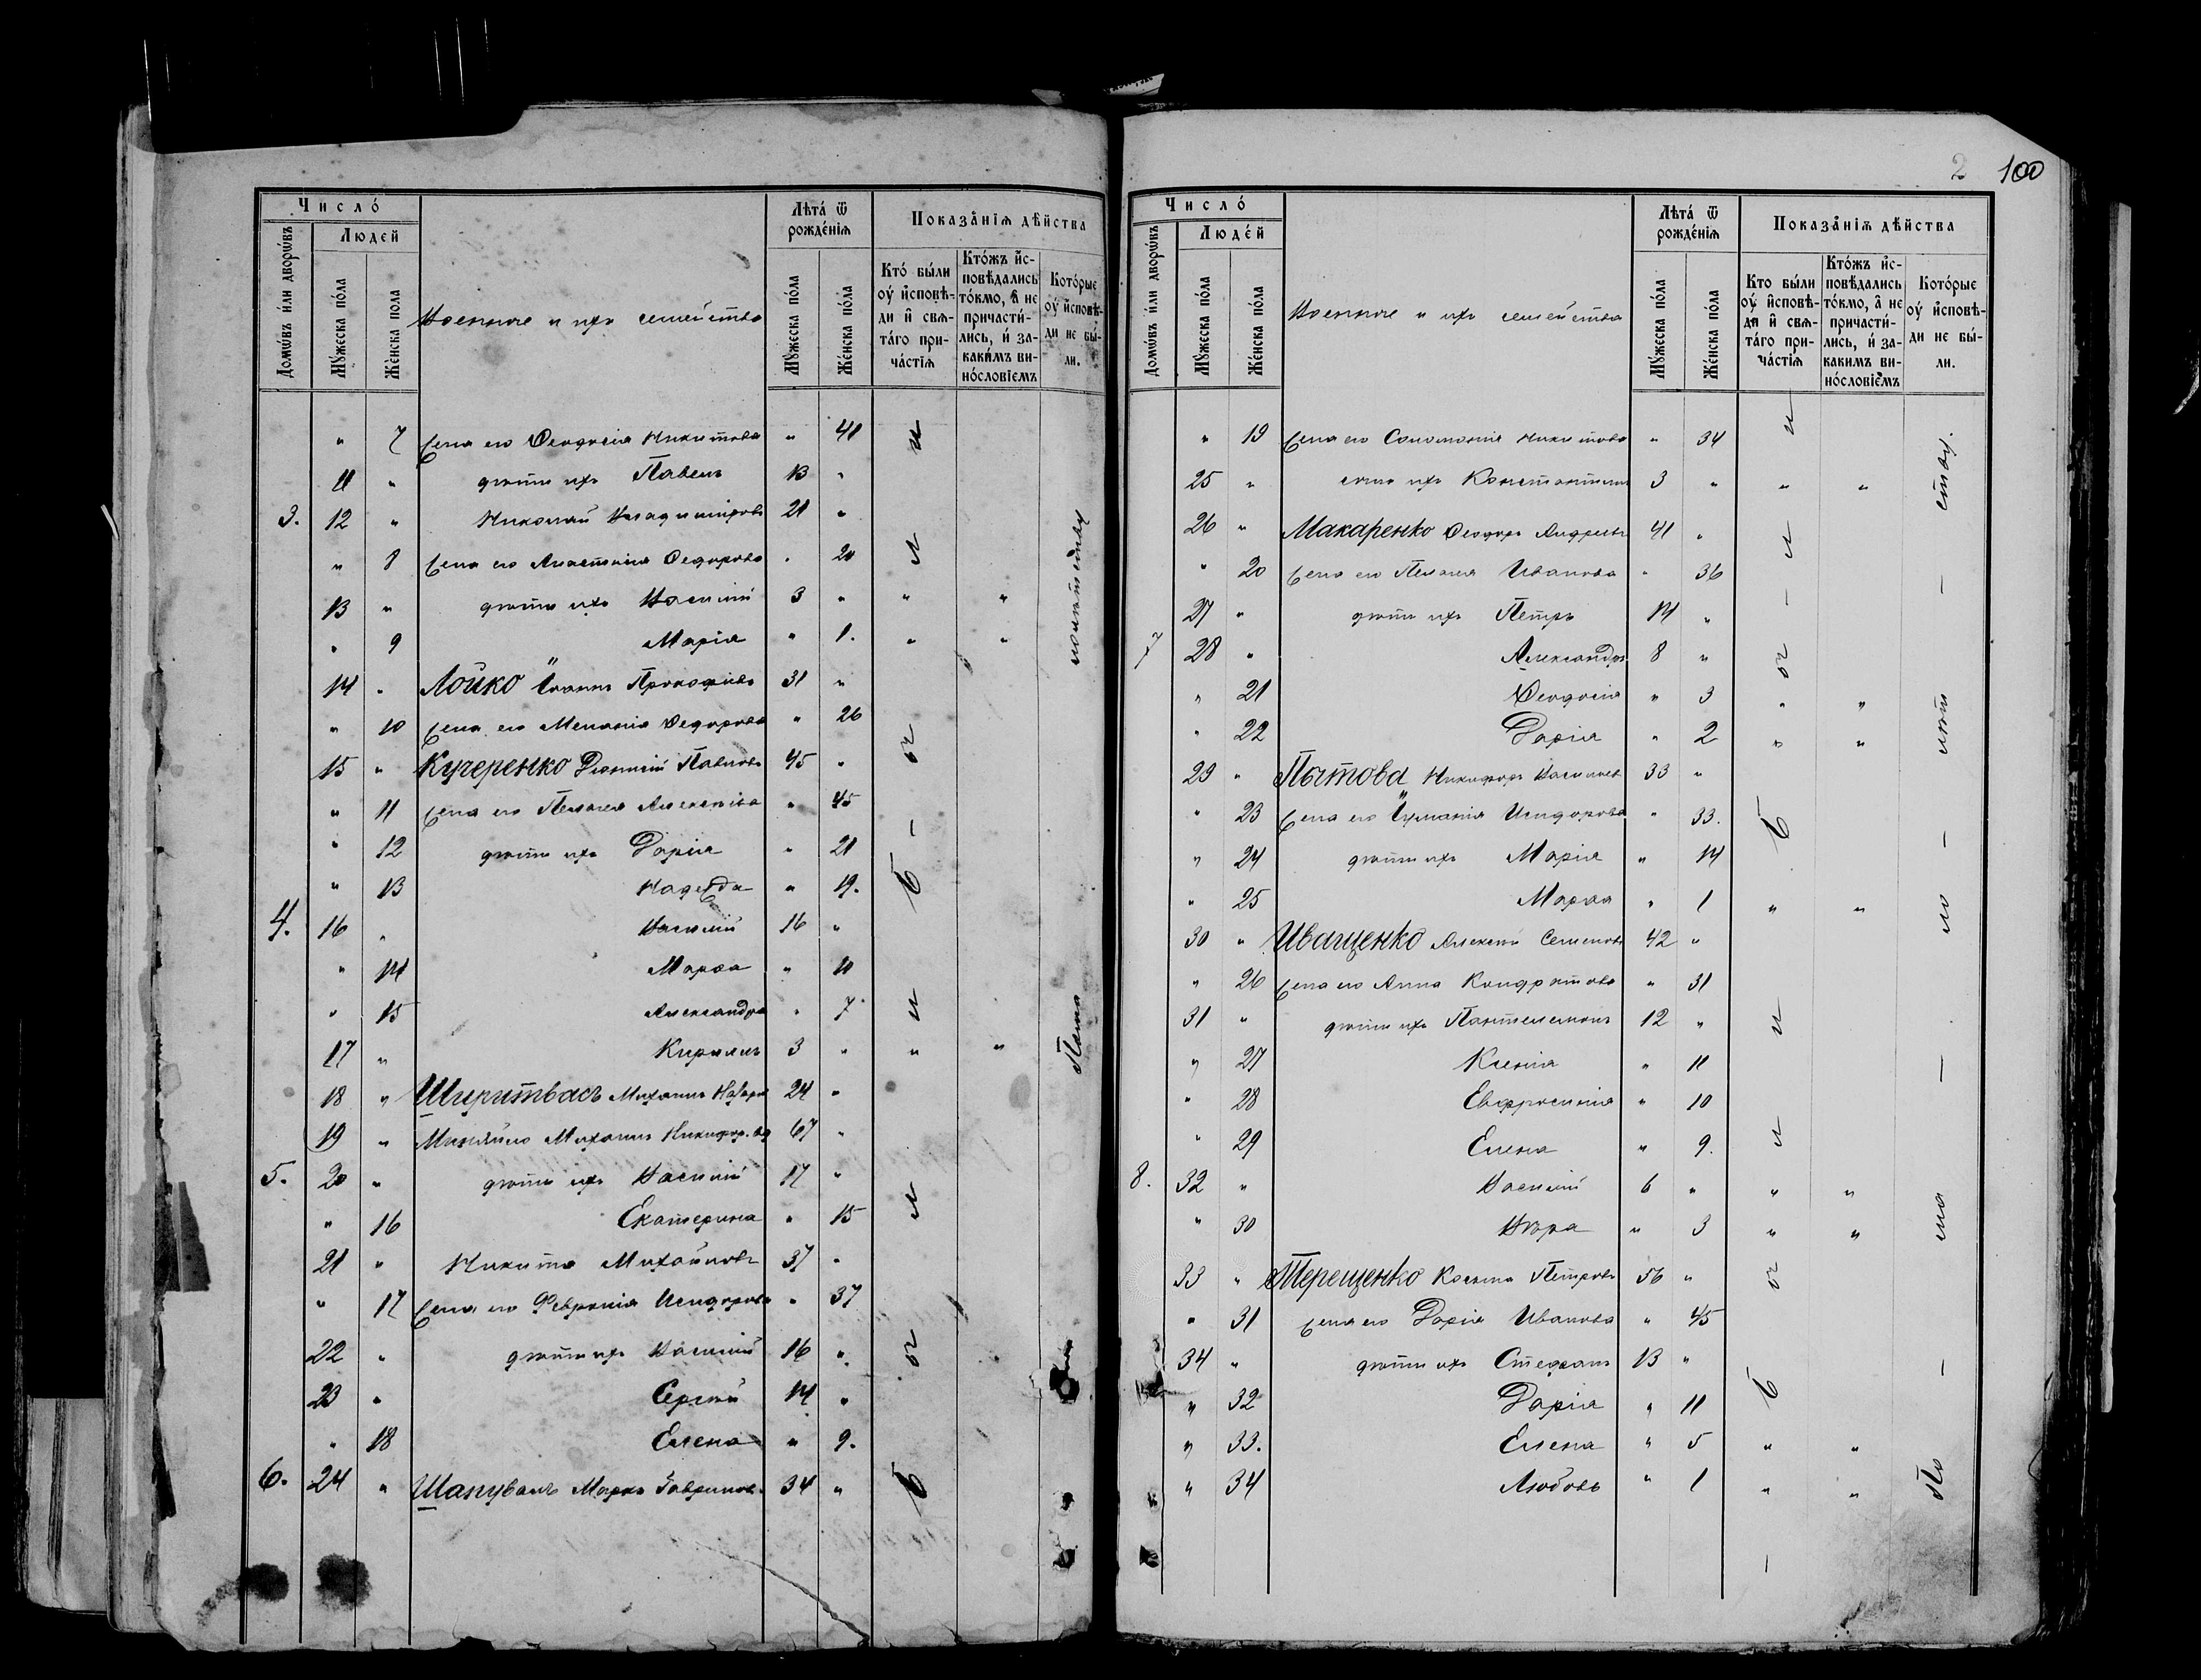 Число́
Людей
Домѡ́въ и́ли дворѡ́въ
Мꙋ́жеска по́ла
Же́нска пола
Военные и ихъ семейства
Лѣта́ ѿ рожде́нїѧ
Мꙋ́жеска по́ла
Же́нска по́ла
Показа́нїѧ дѣ́йства
Кто́ бы́ли оу҆ и҆сповѣ-
ди и҆ свѧ-
та́го при-
ча́стїѧ
Кто́жъ и҆с-
повѣдались
то́кмо, а҆ не
причасти́-
лись, и҆ за-
каки́мъ ви-
носло́вїемъ
Кото́рые
оу҆ и҆сповѣ-
ди не бы́-
ли.
„ 7 жена его Ѳеодосія Никитова „ 41
11 „ дѣти ихъ Павелъ 13 „
3. 12 „ Николай Владиміровъ 21 „
„ 8 жена его Анастасія Ѳедорова „ 20
13 „ дѣти ихъ Василій 3 „ „ „
„ 9 Марія „ 1. „ „
14 „ Лойко Іоаннъ Прокофіевъ 31 „
„ 10 жена его Меланія Ѳедорова „ 26
15 „ Кучеренко Діонисій Павловъ 45 „
„ 11 жена его Пелагея Алексѣева „ 45
„ 12 дѣти ихъ Дарія „ 21
„ 13 Надежда „ 19.
4. 16 „ Василій 16 „
„ 14 Марѳа „ 10
„ 15 Александра „ 7
17 „ Кириллъ 3 „ „ „
18 „ Михаилъ 24 „
19 „ Михаилъ 67 „
5. 20 „ дѣти ихъ Василій 17 „
„ 16 Екатерина „ 15
21 „ Никита Михайловъ 37 „
„ 17 жена его Февронія Исидорова „ 37
22 „ дѣти ихъ Василій 16 „
23 „ Сергѣй 14 „
„ 18 Елена „ 9.
6. 24 „ Шапувалъ Марко Гавриловъ 34 „
были
2 100
Число́
Люде́й
Домѡ́въ и́ли дворѡ́въ
Мꙋ́жеска по́ла
Же́нска по́ла
Военные и ихъ семейства
Лѣта́ ѿ рожде́нїѧ
Мꙋ́жеска по́ла
Же́нска по́ла
Показа́нїѧ дѣ́йства
Кто бы́ли
оу҆ и҆сповѣ-
ди и҆ свѧ-
та́го при-
ча́стїѧ
Кто́жъ и҆с-
повѣдались
то́кмо, а҆ не
причасти́-
лись, и҆ за-
какимъ ви-
носло́вїемъ
Кото́рые
оу҆ и҆сповѣ-
ди не бы́-
ли.
„ 19 жена его Соломонія Никитова „ 34
25 „ сынъ ихъ Константинъ 3 „ „ „
26 „ Макаренко Ѳеодоръ Андреевъ 41 „
„ 20 жена его Пелагея Иванова „ 36
27 „ дѣти ихъ Петръ 14 „
7 28 „ Александръ 8 „
„ 21 Ѳеодосія „ 3 „ „
„ 22 Дарія „ 2 „ „
29 „ Пытова Никифоръ Васильевъ 33 „
„ 23 жена его Іуліанія Исидорова „ 33.
„ 24 дѣти ихъ Марія „ 14
„ 25 Марѳа „ 1 „ „
30 „ Иващенко Алексѣй Семеновъ 42 „
„ 26 жена его Анна Кондратова „ 31
31 „ дѣти ихъ Пантелеимонъ 12 „
„ 27 Ксенія „ 11
„ 28 Евфросинія „ 10
„ 29 Елена „ 9.
8. 32 „ Василій 6 „ „ „
„ 30 Вѣра „ 3 „ „
33 „ Терещенко Косьма Петровъ 56 „
„ 31 жена его Дарія Иванова „ 45
34 „ дѣти ихъ Стефанъ 13 „
„ 32 Дарія „ 11
„ 33. Елена „ 5 „ „
„ 34 Любовь „ 1 „ „
были – были
По мало – лѣт – ству.